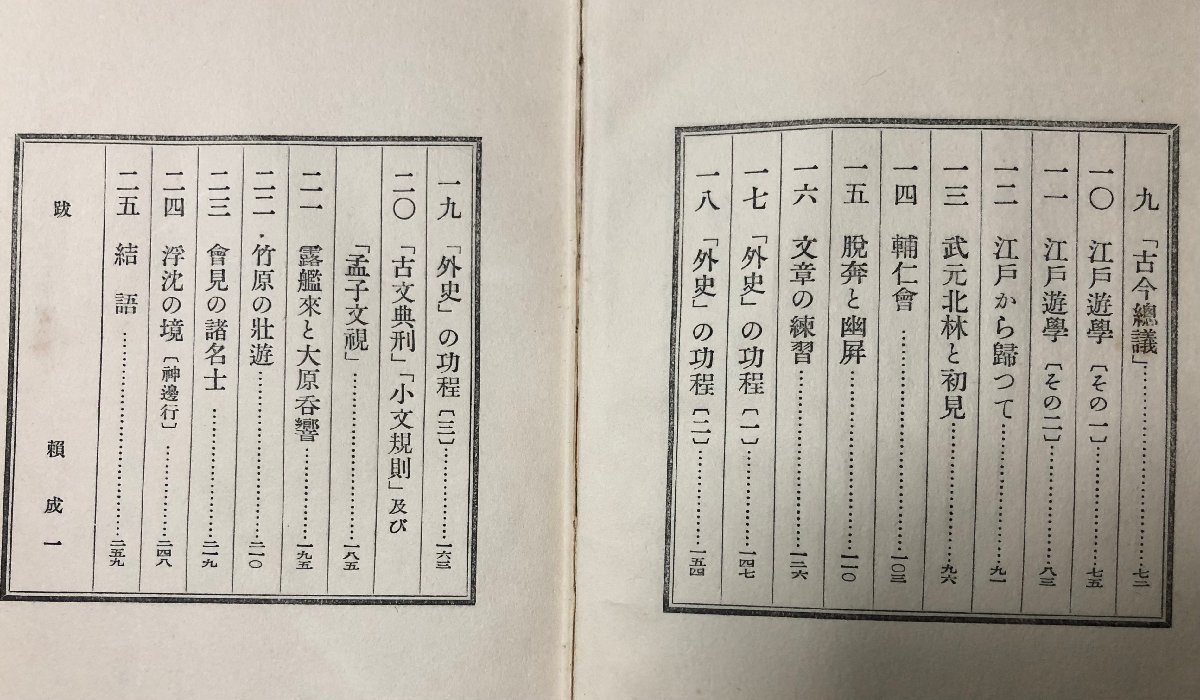 九 「古今總議」……………………七二
一〇 江戶遊學〔その一〕……………………七五
一一 江戶遊學〔その二〕……………………八三
一二 江戶から歸つて……………………九一
一三 武元北林と初見……………………九六
一四 輔仁會……………………一〇三
一五 脫奔と幽屛……………………一一〇
一六 文章の練習……………………一二六
一七 「外史」の功程〔一〕……………………一四七
一八 「外史」の功程〔二〕……………………一五四
一九 「外史」の功程〔三〕……………………一六三
二〇 「古文典刑」「小文規則」及び
「孟子文視」……………………一八五
二一 露艦來と大原呑響……………………一九五
二二 竹原の壯遊……………………二一〇
二三 會見の諸名士……………………二一九
二四 浮沈の境〔神邊行〕……………………二四八
二五 結語……………………二五九
跋 賴成一